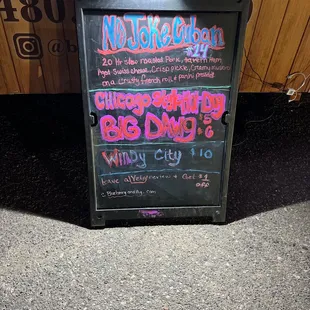 480
@b
No Joke Cuban
$14
20 Hr slow roasted Pork, tavern Ham
Aged Swiss cheese, Crisp pickle, Creamy mustard
on a Crusty french roll & panini pressed
Chicago
BIG DAWG $6
Windy City $10
Leave a Yelp review & Get $1
OFF